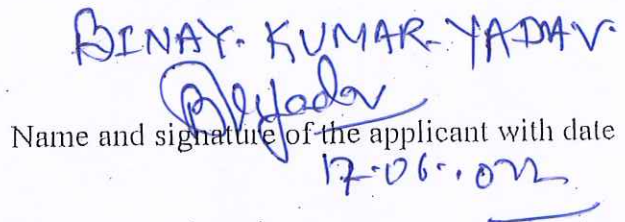 BINAY. KUMAR. YADAV.
BKYadav
Name and signature of the applicant with date
17.06.022